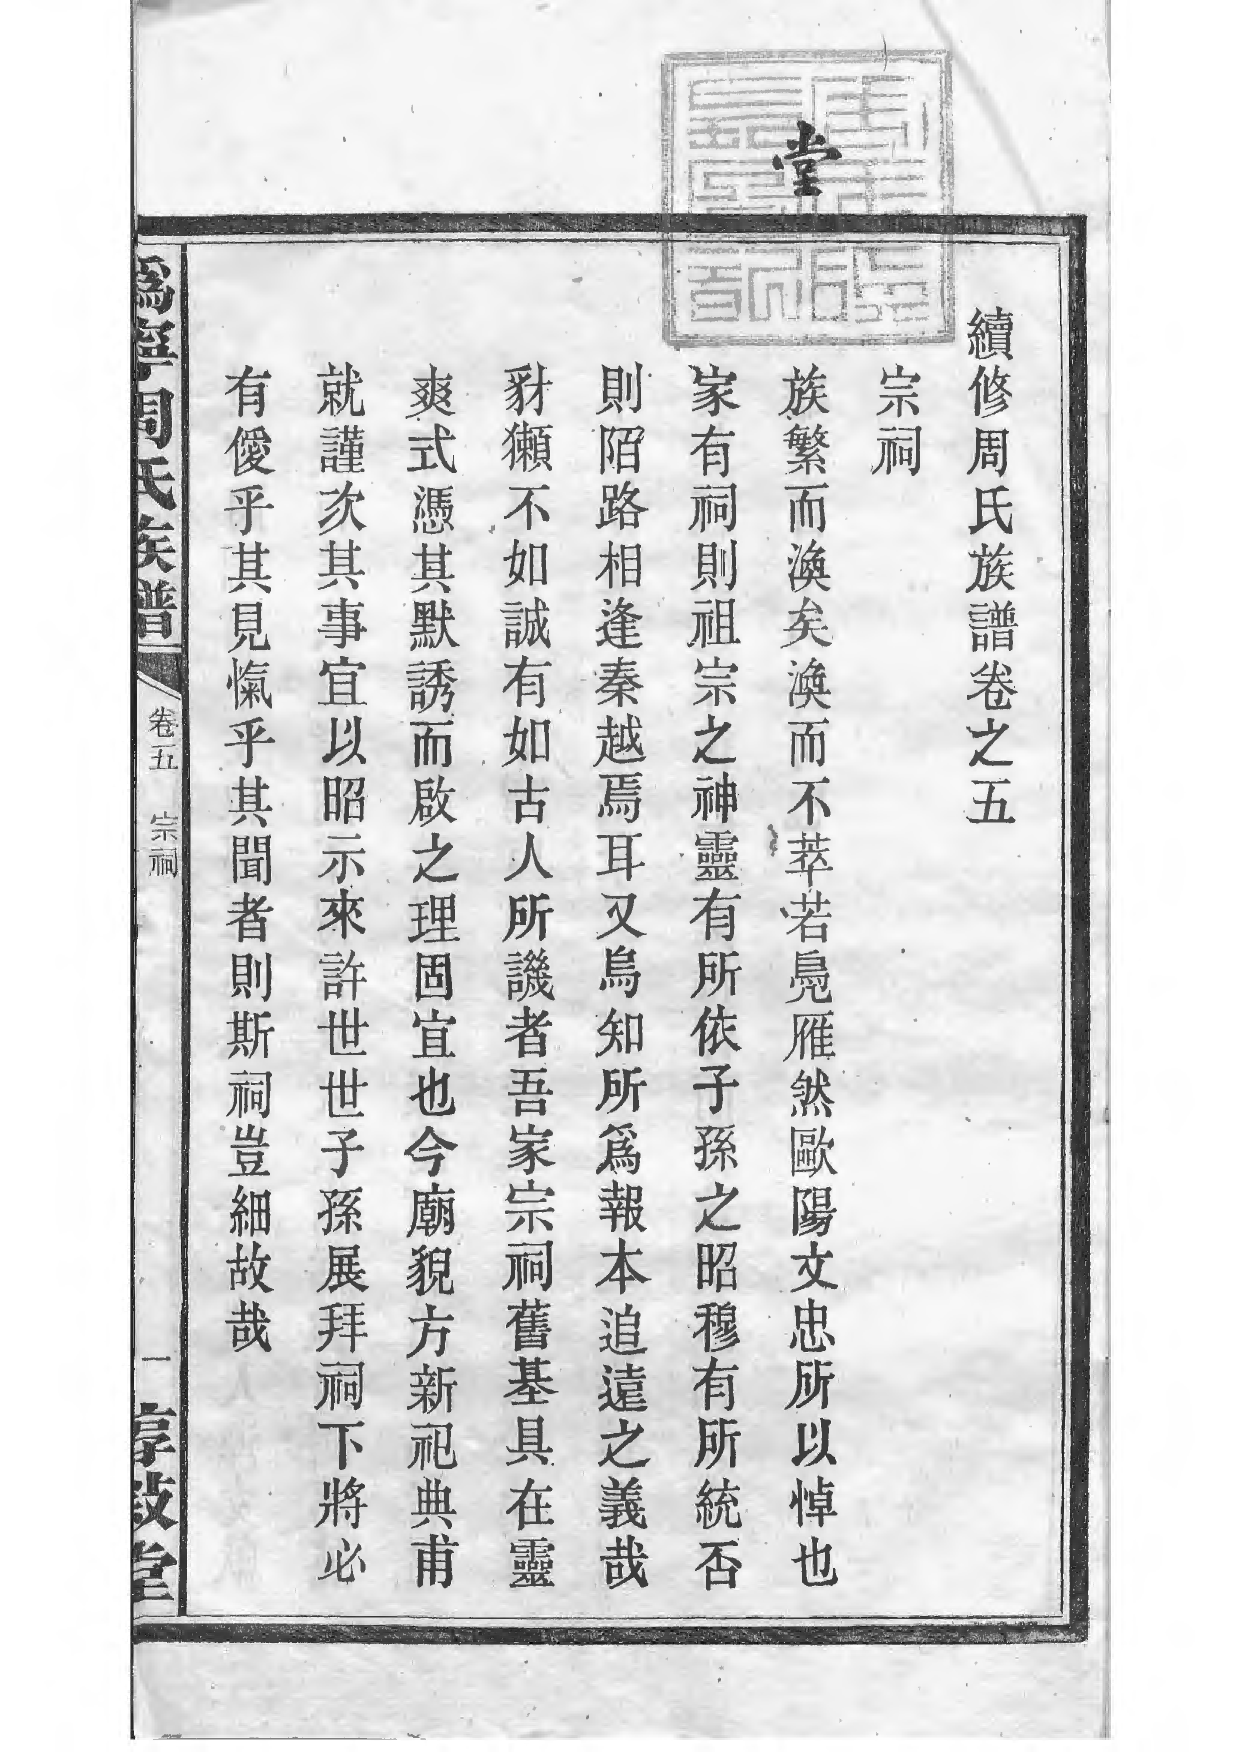 堂
續修周氏族譜卷之五
宗祠
族繁而渙矣渙而不萃若鳧雁然歐陽文忠所以悼也
家有祠則祖宗之神靈有所依子孫之昭穆有所統否
則陌路相逢秦越焉耳又烏知所爲報本追遠之義哉
豺獺不如誠有如古人所譏者吾家宗祠舊基具在靈
爽式憑其默誘而啟之理固宜也今廟貌方新祀典甫
就謹次其事宜以昭示來許世世子孫展拜祠下將必
有僾乎其見愾乎其聞者則斯祠豈細故哉
爲寧周氏族譜
卷五 宗祠
一
惇敘堂